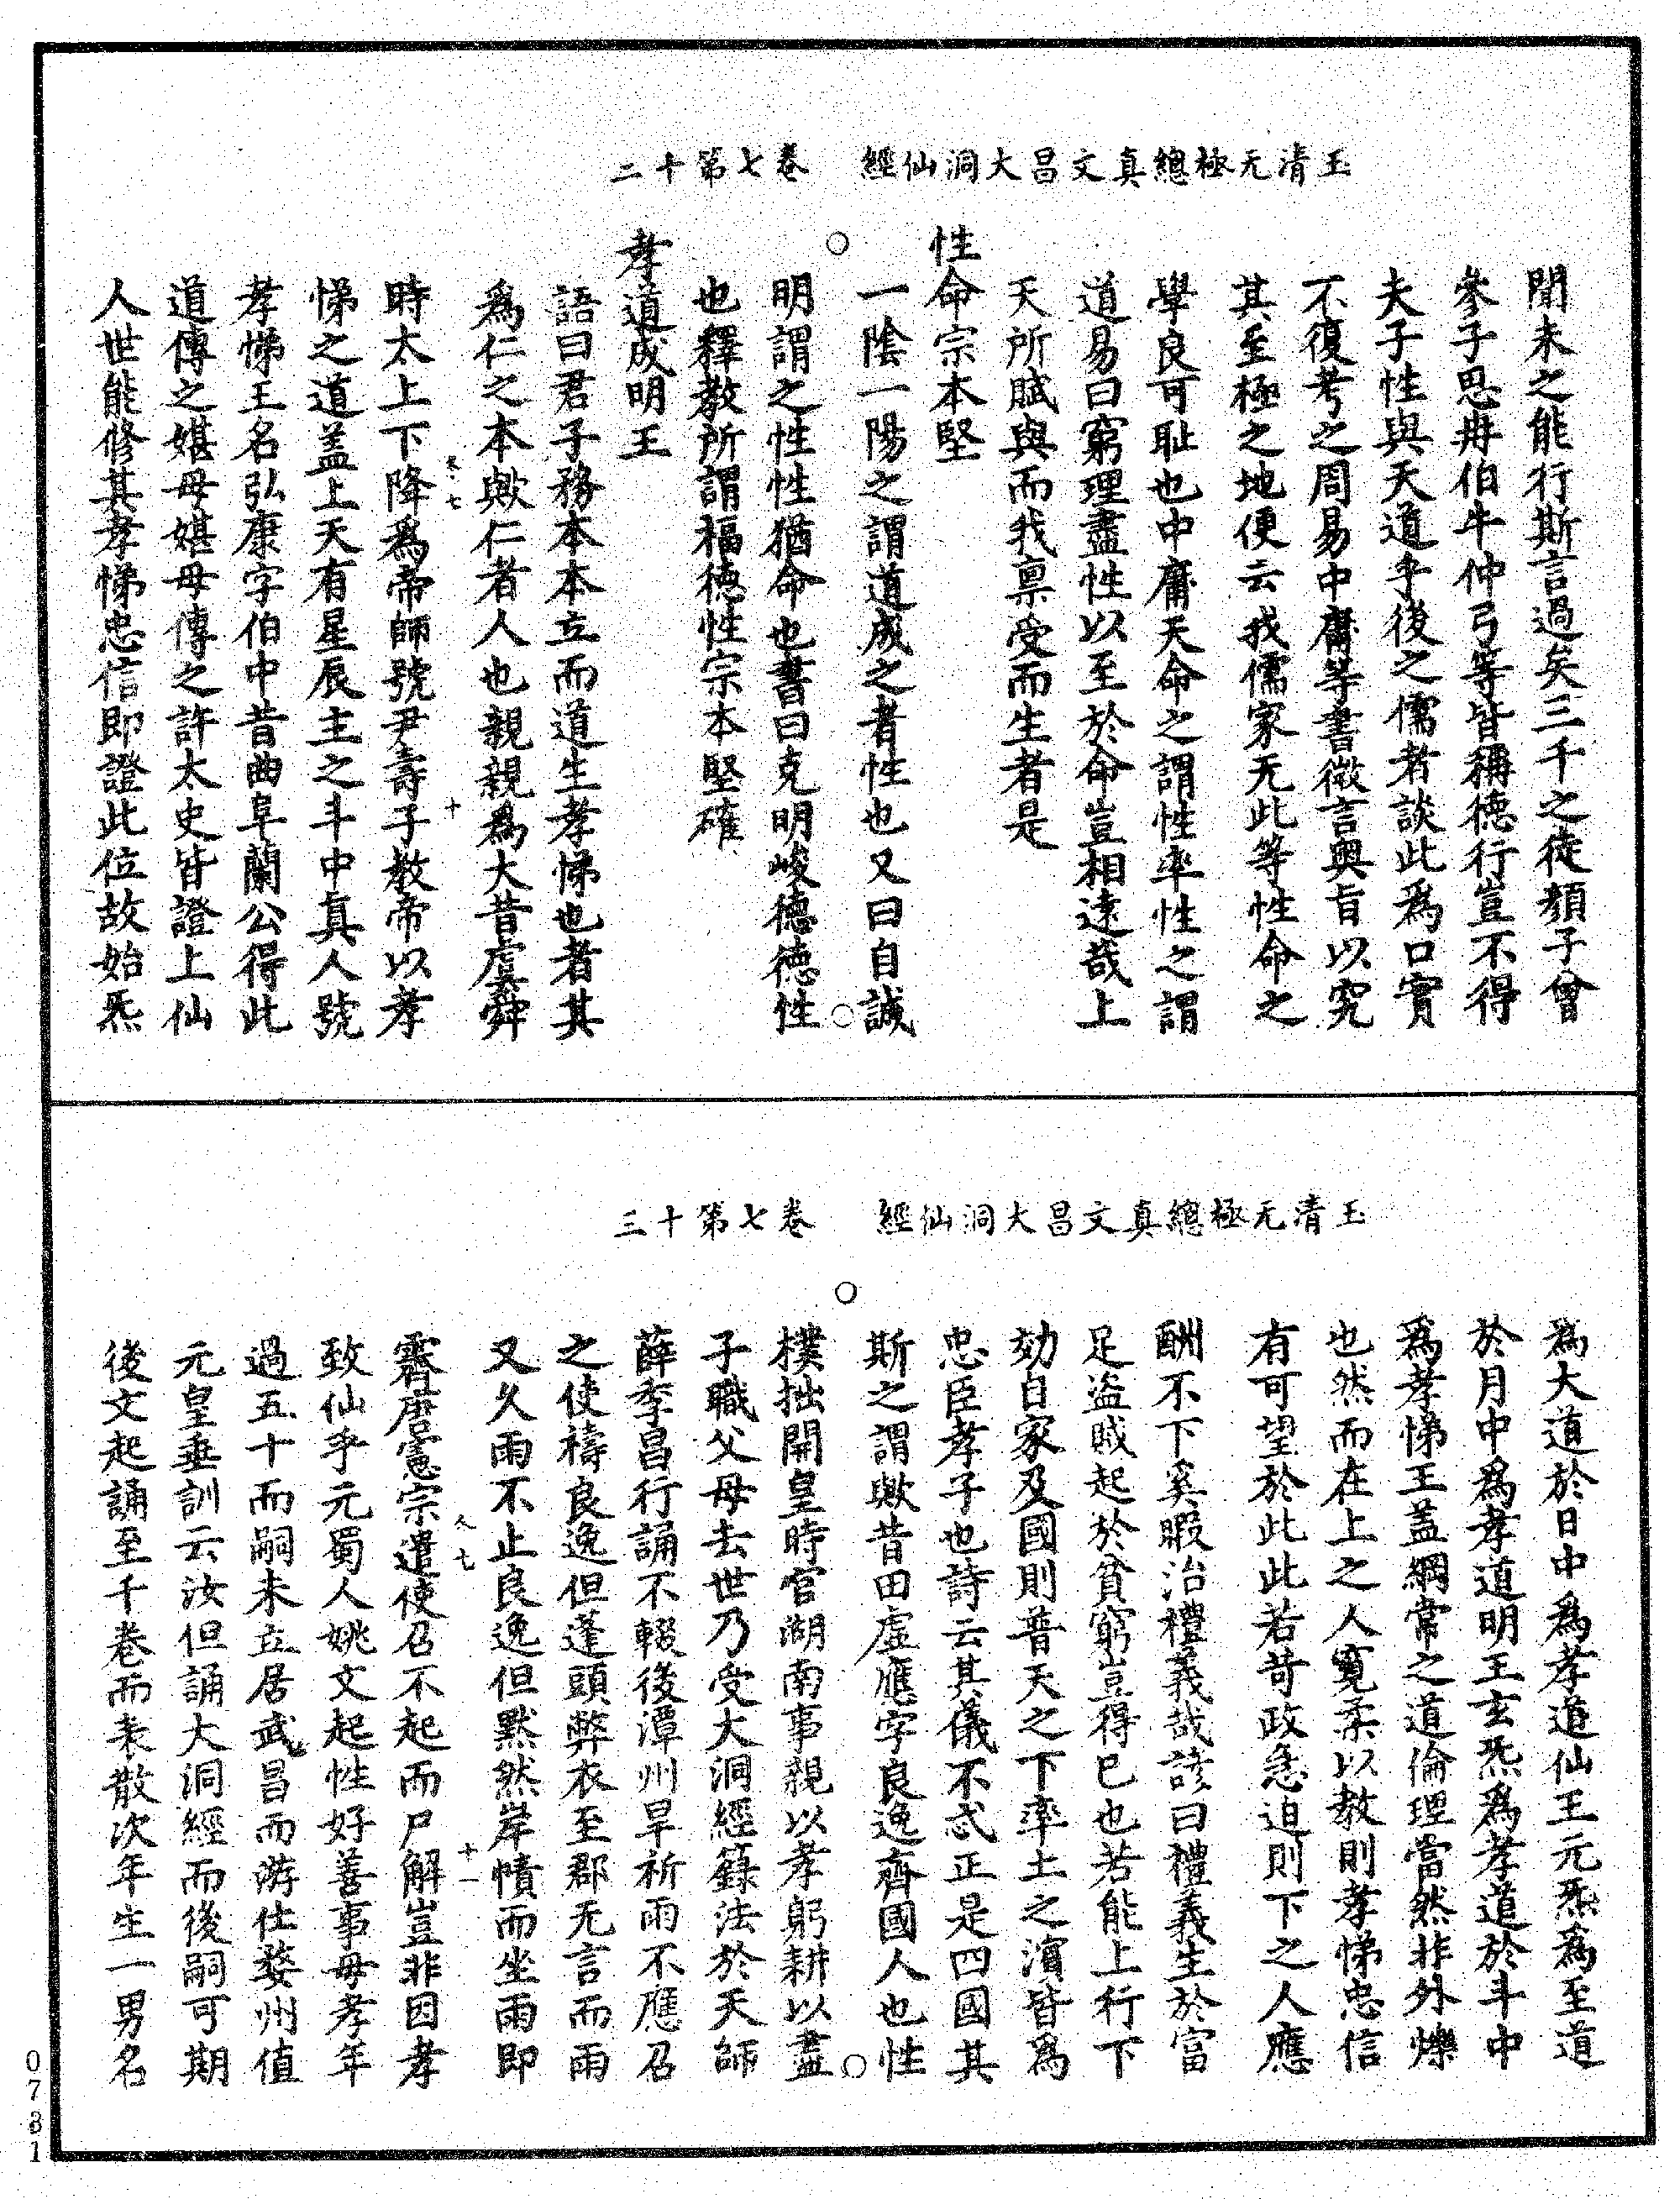 玉清无極總真文昌大洞仙經　卷七第十二
聞未之能行斯言過矣三千之徒顏子曾
參子思冉伯牛仲弓等皆稱德行豈不得
夫子性與天道乎後之儒者談此爲口實
不復考之周易中庸等書微言奥旨以究
其至極之地便云我儒家无此等性命之
學良可耻也中庸天命之謂性率性之謂
道易曰窮理盡性以至於命豈相遠哉上
天所賦與而我禀受而生者是
性命宗本堅
一陰一陽之謂道成之者性也又曰自誠
明謂之性性猶命也書曰克明峻德德性
也釋教所謂福德性宗本堅確
孝道成明王
語曰君子務本本立而道生孝悌也者其
爲仁之本歟仁者人也親親爲大昔虞舜
卷七　十
時太上下降爲帝師號尹壽子教帝以孝
悌之道盖上天有星辰主之斗中真人號
孝悌王名弘康字伯中昔曲阜蘭公得此
道傳之媅母媅母傳之許太史皆證上仙
人世能修其孝悌忠信即證此位故始炁
玉清无極總真文昌大洞仙經　卷七第十三
爲大道於日中爲孝道仙王元炁爲至道
於月中爲孝道明王玄炁爲孝道於斗中
爲孝悌王盖綱常之道倫理當然非外爍
也然而在上之人寬柔以教則孝悌忠信
有可望於此此若苛政急迫則下之人應
酬不下奚暇治禮義哉諺曰禮義生於富
足盜賊起於貧窮豈得已也若能上行下
効自家及國則普天之下率土之濱皆爲
忠臣孝子也詩云其儀不忒正是四國其
斯之謂歟昔田虛應字良逸齊國人也性
樸拙開皇時官湖南事親以孝躬耕以盡
子職父母去世乃受大洞經籙法於天師
薛季昌行誦不輟後潭州旱祈雨不應召
之使禱良逸但蓬頭弊衣至郡无言而雨
又久雨不止良逸但黙然岸幘而坐雨即
卷七　十一
霽唐憲宗遣使召不起而尸解豈非因孝
致仙乎元蜀人姚文起性好善事母孝年
過五十而嗣未立居武昌而游仕婺州值
元皇垂訓云汝但誦大洞經而後嗣可期
後文起誦至千卷而表散次年生一男名
0731